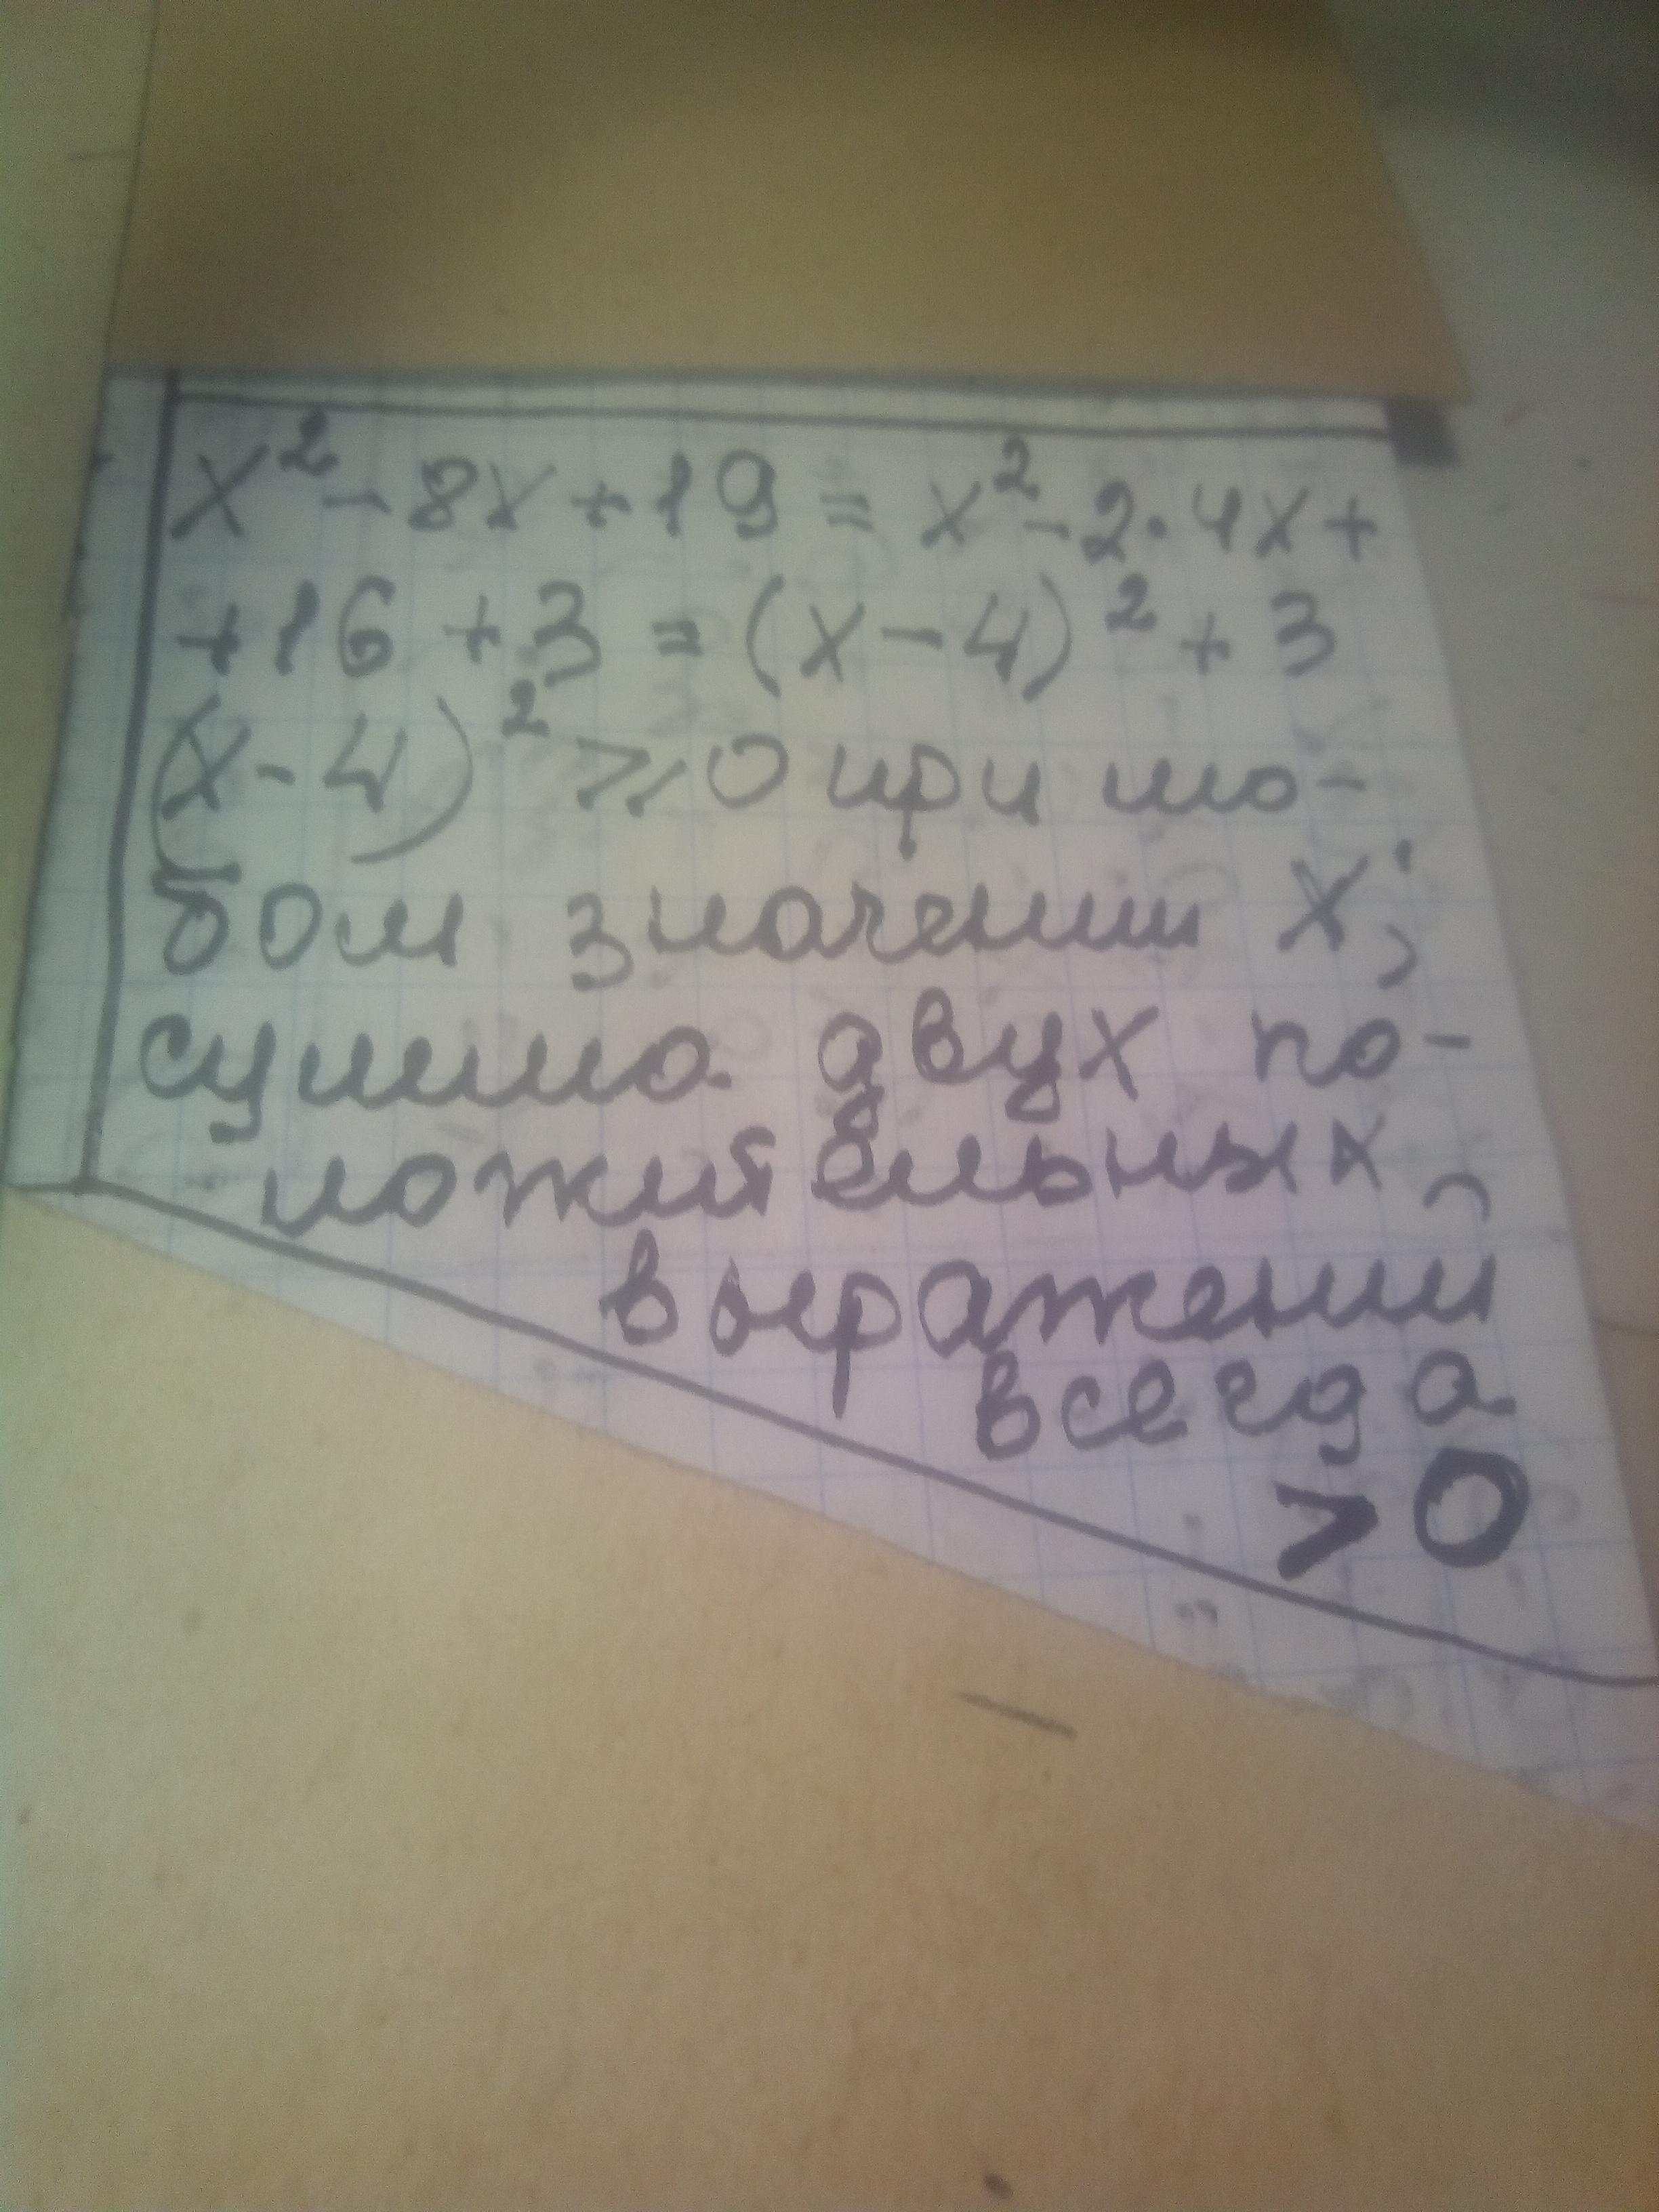 x² - 8x + 19 = x² - 2 · 4x +
+ 16 + 3 = (x - 4)² + 3
(x - 4)² ⩾ 0 при лю-
бом значении x;
сумма двух по-
ложительных
выражений
всегда
> 0